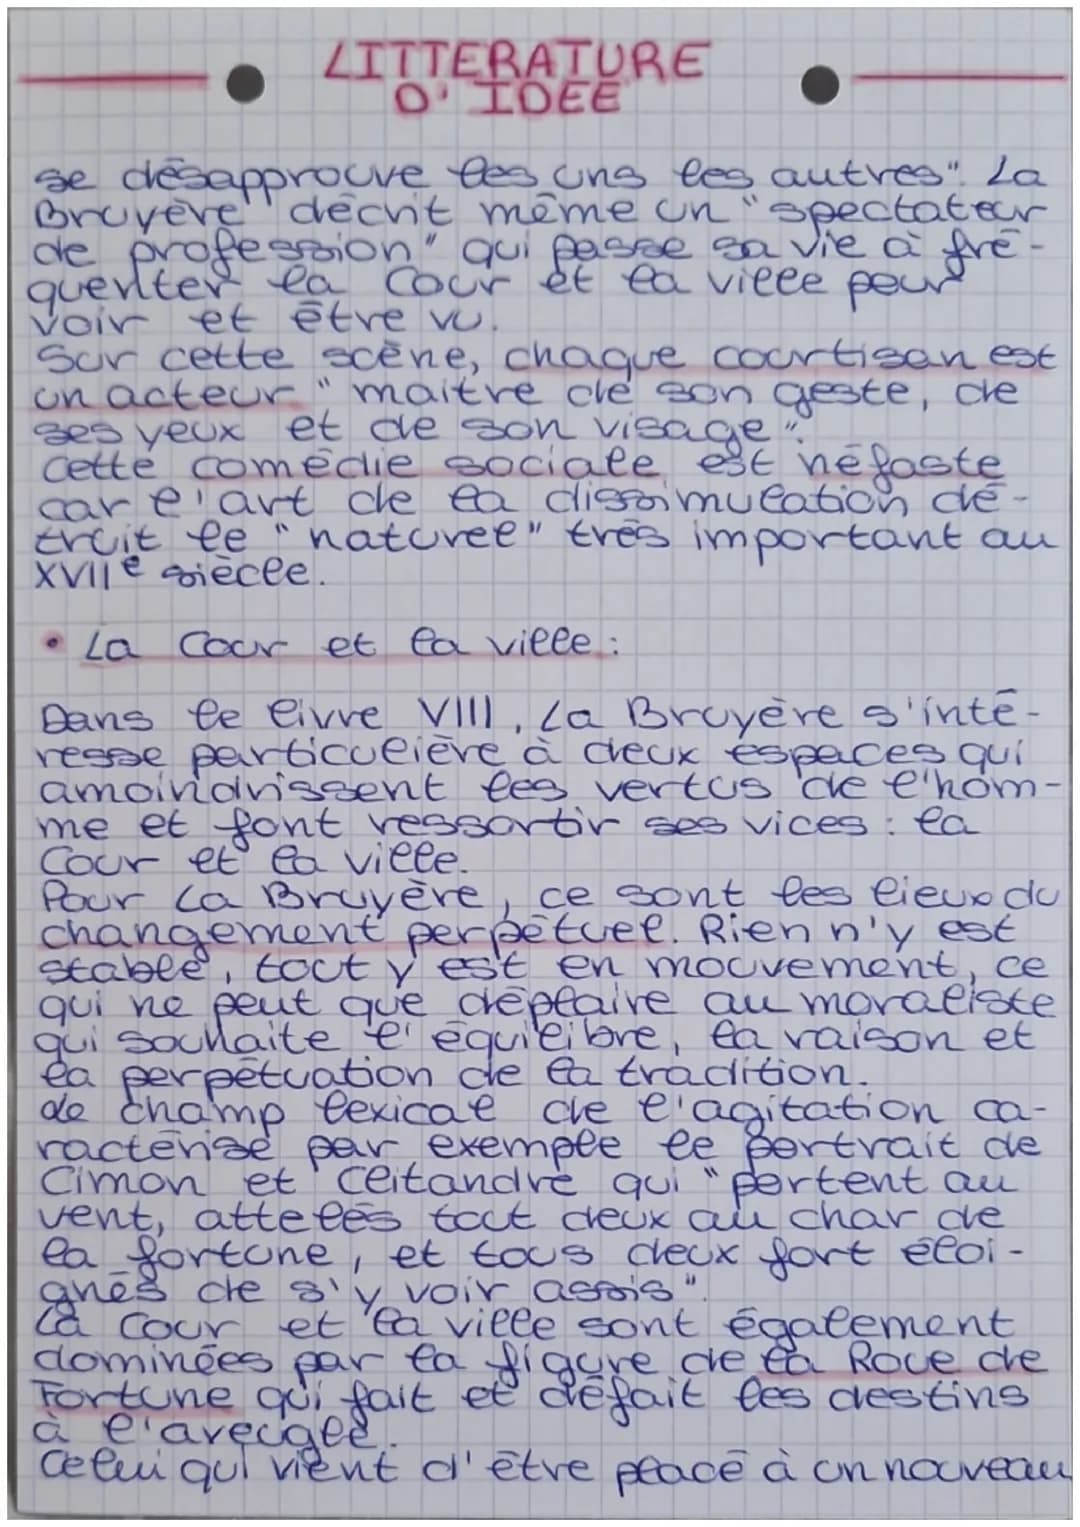 LITTERATURE
D'IDEE
se désapprouve les uns les autres". La
Bruyère décrit même un "spectateur
de profession" qui passe sa vie à fré-
quenter la Cour et la ville pour
voir et être vu.
Sur cette scène, chaque courtisan est
un acteur "maitre de son geste, de
ses yeux et de son visage".
Cette comédie sociale est néfaste
car l'art de la dissimulation dé-
truit le "naturel" très important au
XVIIe siècle.
• La Cour et la ville :
Dans le livre VIII, La Bruyère s'inté-
resse particulière à deux espaces qui
amoindrissent les vertus de l'hom-
me et font ressortir ses vices : la
Cour et la ville.
Pour La Bruyère, ce sont les lieux du
changement perpétuel. Rien n'y est
stable, tout y est en mouvement, ce
qui ne peut que déplaire au moraliste
qui souhaite l'équilibre, la raison et
la perpétuation de la tradition.
Le champ lexical de l'agitation ca-
ractérise par exemple le portrait de
Cimon et Clitandre qui "portent au
vent, attelés tout deux au char de
la fortune, et tous deux fort éloi-
gnés de s'y voir assis".
La Cour et la ville sont également
dominées par la figure de la Roue de
Fortune qui fait et défait les destins
à l'aveugle.
Celui qui vient d'être placé à un nouveau